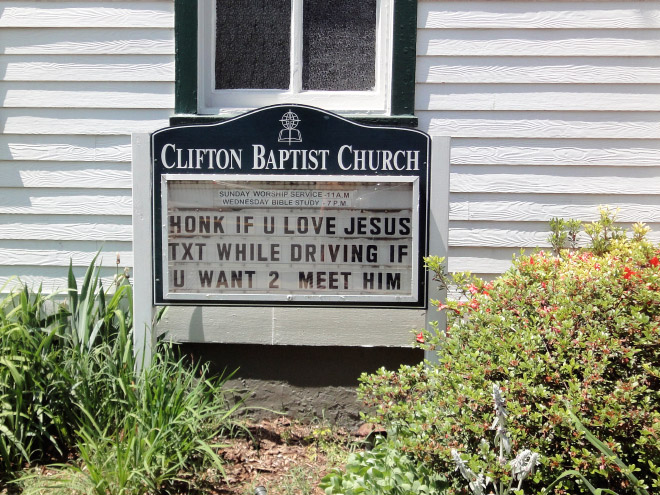 CLIFTON BAPTIST CHURCH
SUNDAY WORSHIP SERVICE - 11 A.M
WEDNESDAY BIBLE STUDY - 7 P.M.
HONK IF U LOVE JESUS
TXT WHILE DRIVING IF
U WANT 2 MEET HIM